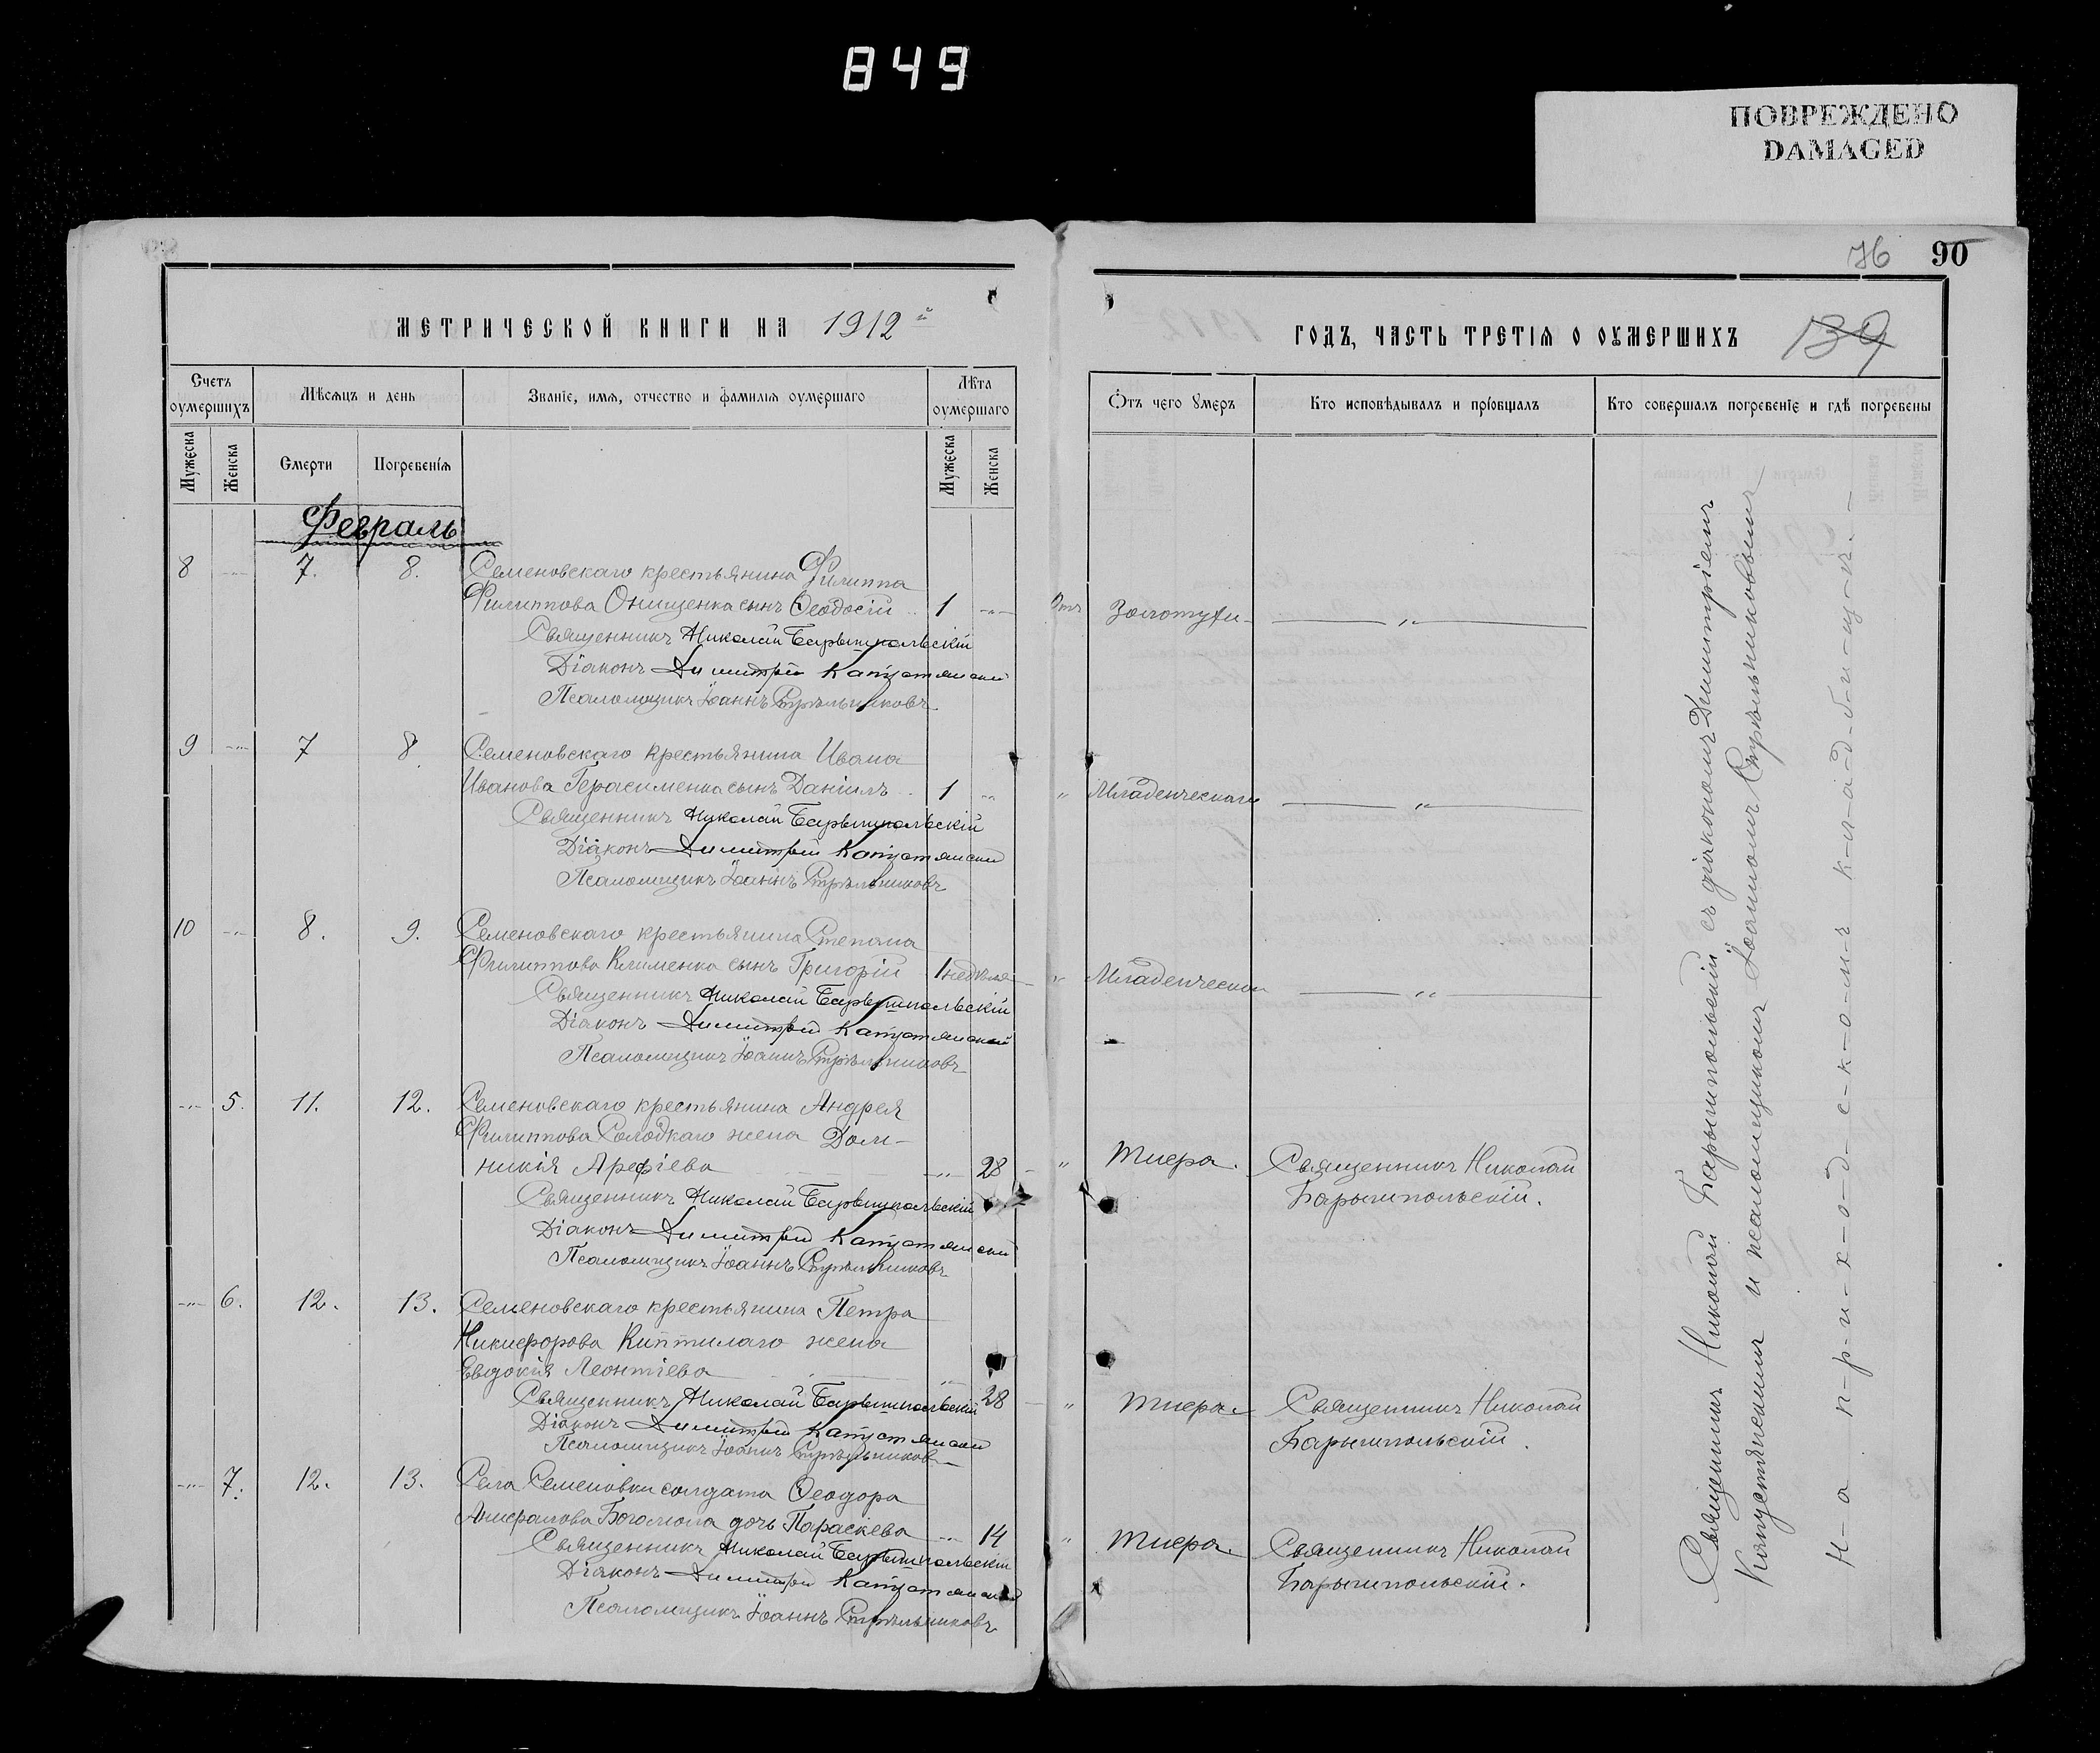 849
ПОВРЕЖДЕНО
DAMAGED
76 90
МЕТРИЧЕСКОЙ КНИГИ НА 1912й
Счетъ оумершихъ
Мѣсяцъ и день
Званіе, имя, отчество и фамилія оумершаго
Лѣта оумершаго
Мужеска
Женска
Смерти
Погребенія
Мужеска
Женска
ГОДЪ, ЧАСТЬ ТРЕТІЯ О ОУМЕРШИХЪ 139
Отъ чего умеръ
Кто исповѣдывалъ и пріобщалъ
Кто совершалъ погребеніе и гдѣ погребены
Февраль
8 -"- 7. 8. Семеновскаго крестьянина Филиппа
Филиппова Онищенка сынъ Ѳеодосій 1 -"- Отъ Золотухи -"-
Священникъ Николай Барышпольскій
Діаконъ Димитрій Капустянскій
Псаломщикъ Іоаннъ Стрѣльниковъ
9 -"- 7 8 Семеновскаго крестьянина Ивана
Иванова Герасименка сынъ Даніилъ 1 -"- " Младенческаго -"-
Священникъ Николай Барышпольскій
Діаконъ Димитрій Капустянскій
Псаломщикъ Іоаннъ Стрѣльниковъ
10 -"- 8. 9. Семеновскаго крестьянина Степана
Филиппова Клименка сынъ Григорій 1 недѣля " Младенческой -"-
Священникъ Николай Барышпольскій
Діаконъ Димитрій Капустянскій
Псаломщикъ Іоаннъ Стрѣльниковъ
-"- 5. 11. 12. Семеновскаго крестьянина Андрея
Филиппова Солодкаго жена Дом-
никія Арефіева -"- 28 " Тифа. Священникъ Николай
Барышпольскій.
Священникъ Николай Барышпольскій
Діаконъ Димитрій Капустянскій
Псаломщикъ Іоаннъ Стрѣльниковъ
-"- 6. 12. 13. Семеновскаго крестьянина Петра
Никифорова Киптилаго жена
Евдокія Леонтіева -"- 28 " Тифа. Священникъ Николай
Барышпольскій.
Священникъ Николай Барышпольскій
Діаконъ Димитрій Капустянскій
Псаломщикъ Іоаннъ Стрѣльниковъ
-"- 7. 12. 13. Села Семеновки солдата Ѳеодора
Богомола дочь Параскева -"- 14 " Тифа. Священникъ Николай
Барышпольскій.
Священникъ Николай Барышпольскій
Діаконъ Димитрій Капустянскій
Псаломщикъ Іоаннъ Стрѣльниковъ
Священникъ Николай Барышпольскій съ діакономъ Димитріемъ
Капустянскимъ и псаломщикомъ Іоанномъ Стрѣльниковымъ
Н-а п-р-и-х-о-д-с-к-о-м-ъ к-л-а-д-б-и-щ-ѣ.